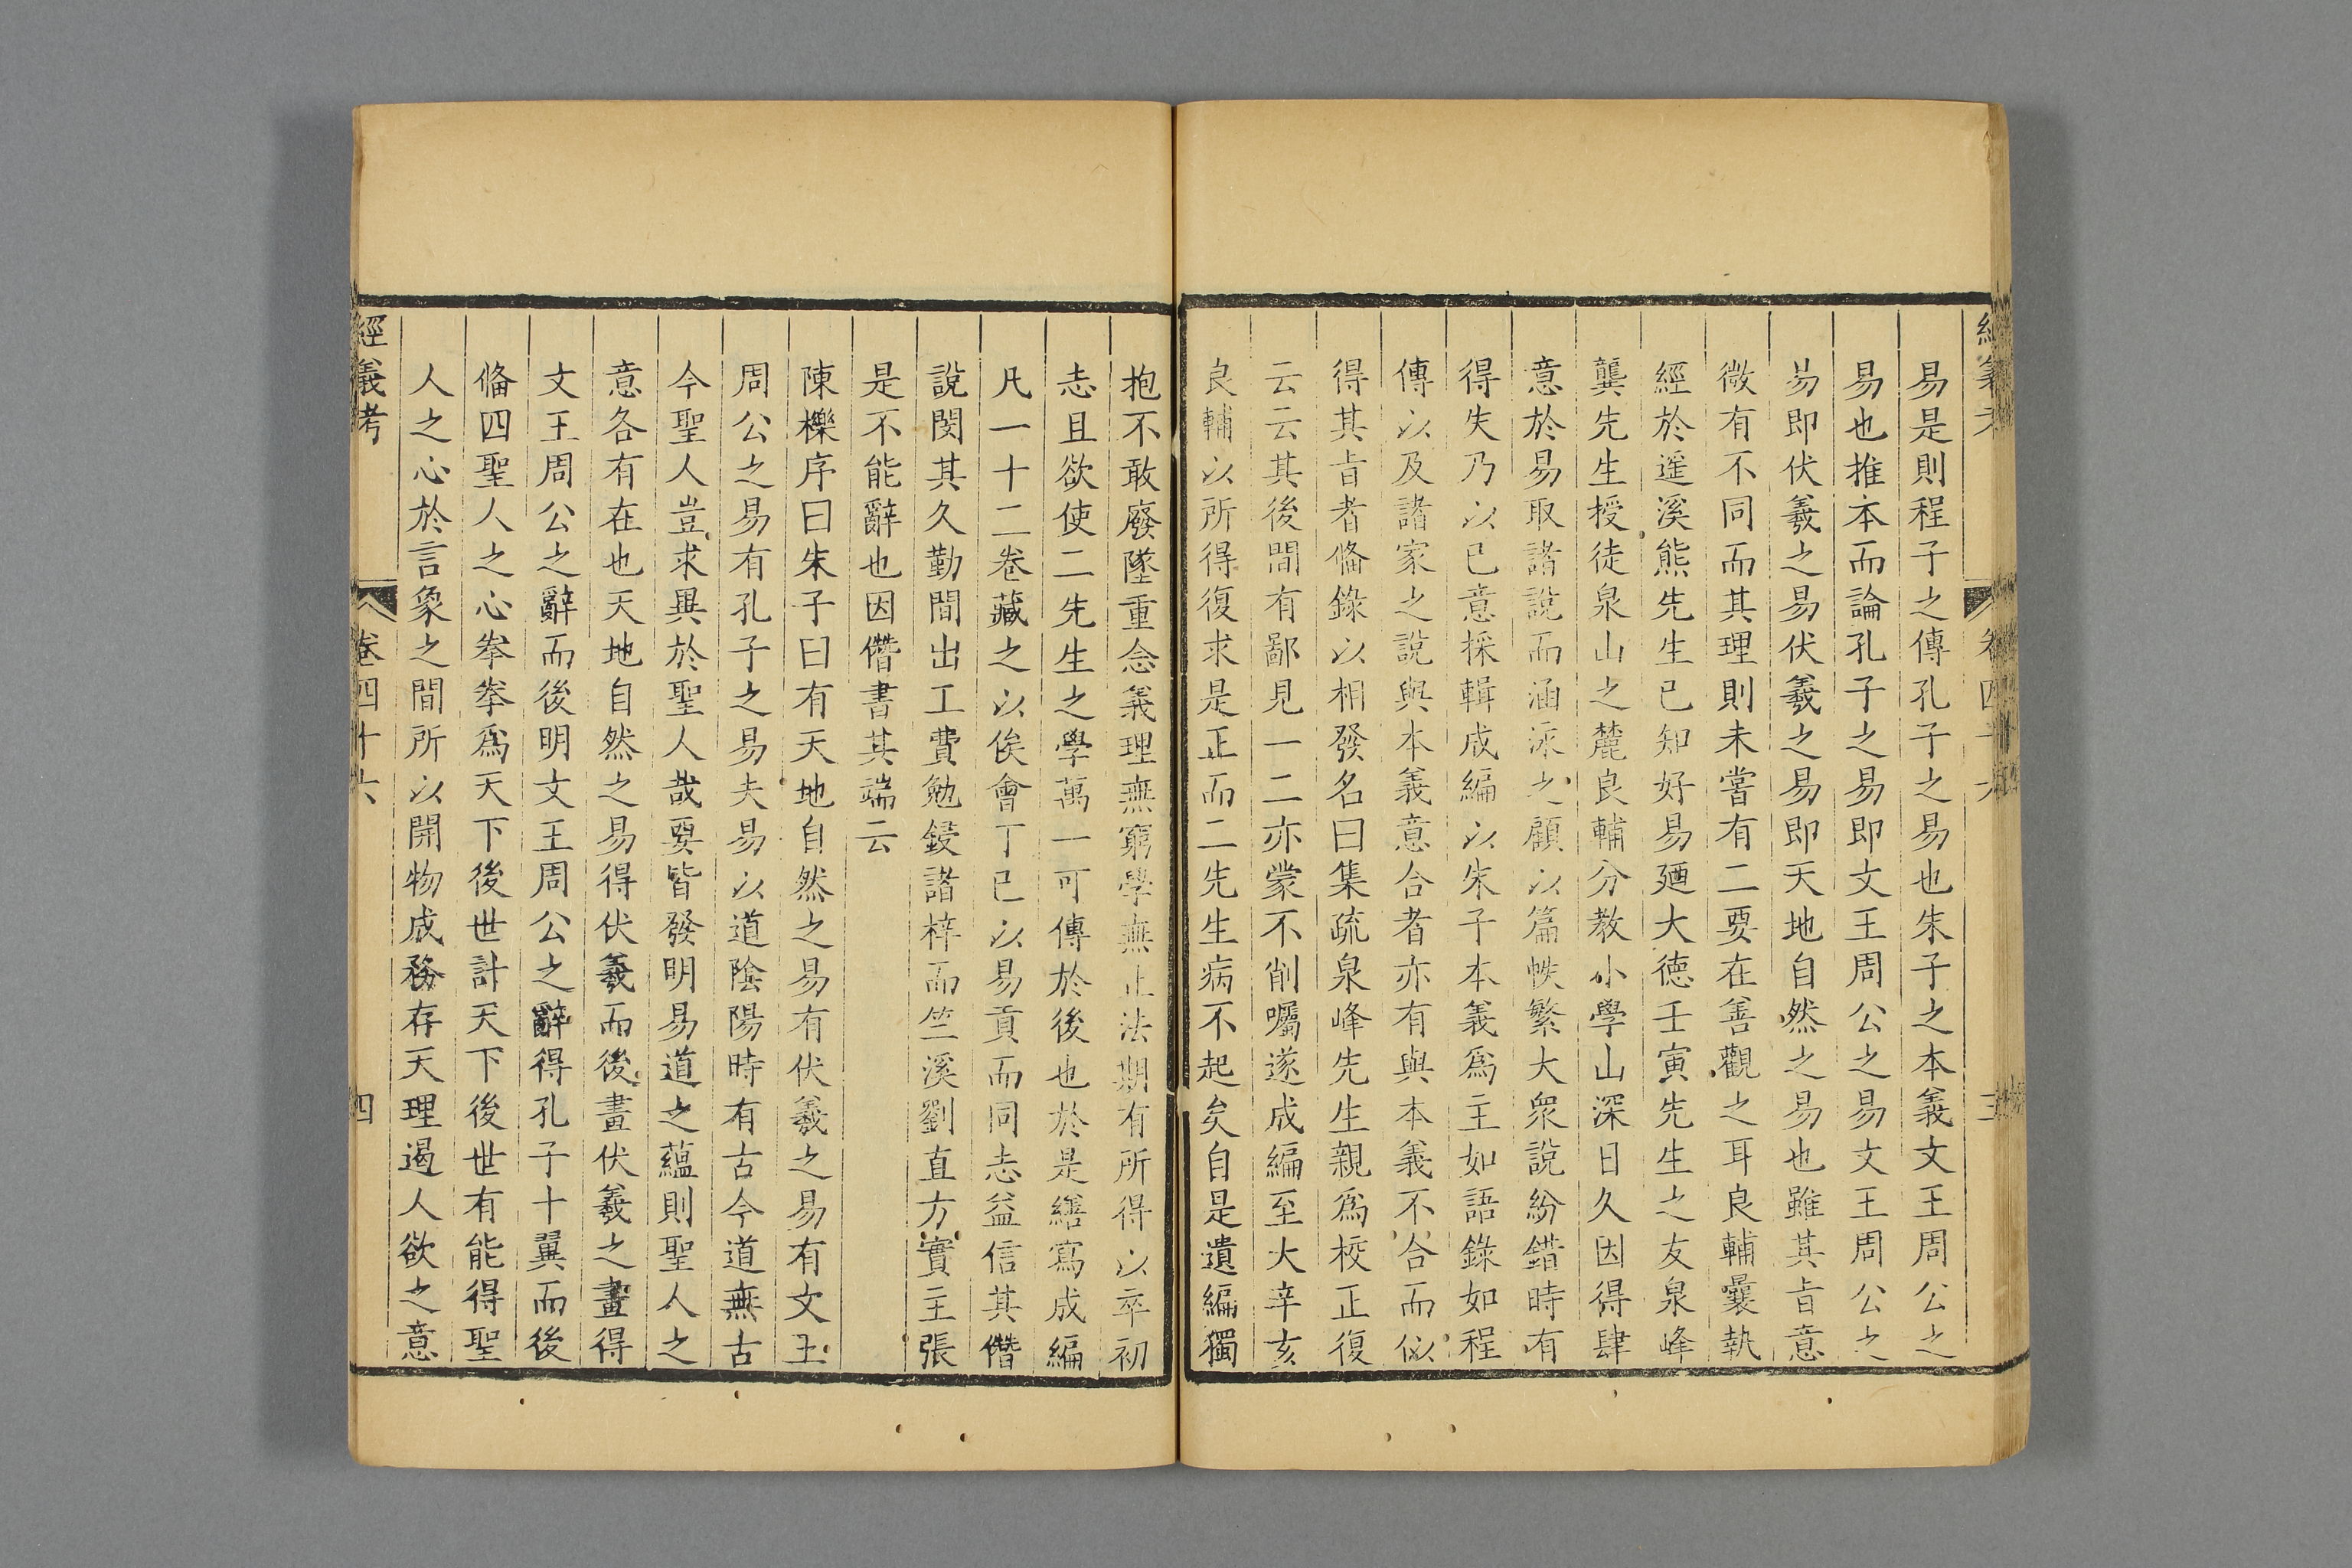 經義考 卷四十六 三
易是則程子之傳孔子之易也朱子之本義文王周公之
易也推本而論孔子之易即文王周公之易文王周公之
易即伏羲之易伏羲之易即天地自然之易也雖其旨意
微有不同而其理則未嘗有二要在善觀之耳良輔曩執
經於遥溪熊先生已知好易廼大德壬寅先生之友泉峰
龔先生授徒泉山之麓良輔分教小學山深日久因得肆
意於易取諸說而涵泳之顧以篇帙繁大衆說紛錯時有
得失乃以已意採輯成編以朱子本義爲主如語錄如程
傳以及諸家之說與本義意合者亦有與本義不合而似
得其旨者俻錄以相發名曰集疏泉峰先生親爲校正復
云云其後間有鄙見一二亦蒙不削囑遂成編至大辛亥
良輔以所得復求是正而二先生病不起矣自是遺編獨
抱不敢廢墜重念義理無窮學無止法期有所得以卒初
志且欲使二先生之學萬一可傳於後也於是繕寫成編
凡一十二卷藏之以俟會丁巳以易貢而同志益信其僭
說閔其久勤間出工費勉鋟諸梓而竺溪劉直方實主張
是不能辭也因僭書其端云
陳櫟序曰朱子曰有天地自然之易有伏羲之易有文王
周公之易有孔子之易夫易以道陰陽時有古今道無古
今聖人豈求異於聖人哉要皆發明易道之蘊則聖人之
意各有在也天地自然之易得伏羲而後畫伏羲之畫得
文王周公之辭而後明文王周公之辭得孔子十翼而後
俻四聖人之心拳拳爲天下後世計天下後世有能得聖
人之心於言象之間所以開物成務存天理遏人欲之意
經義考 卷四十六 四